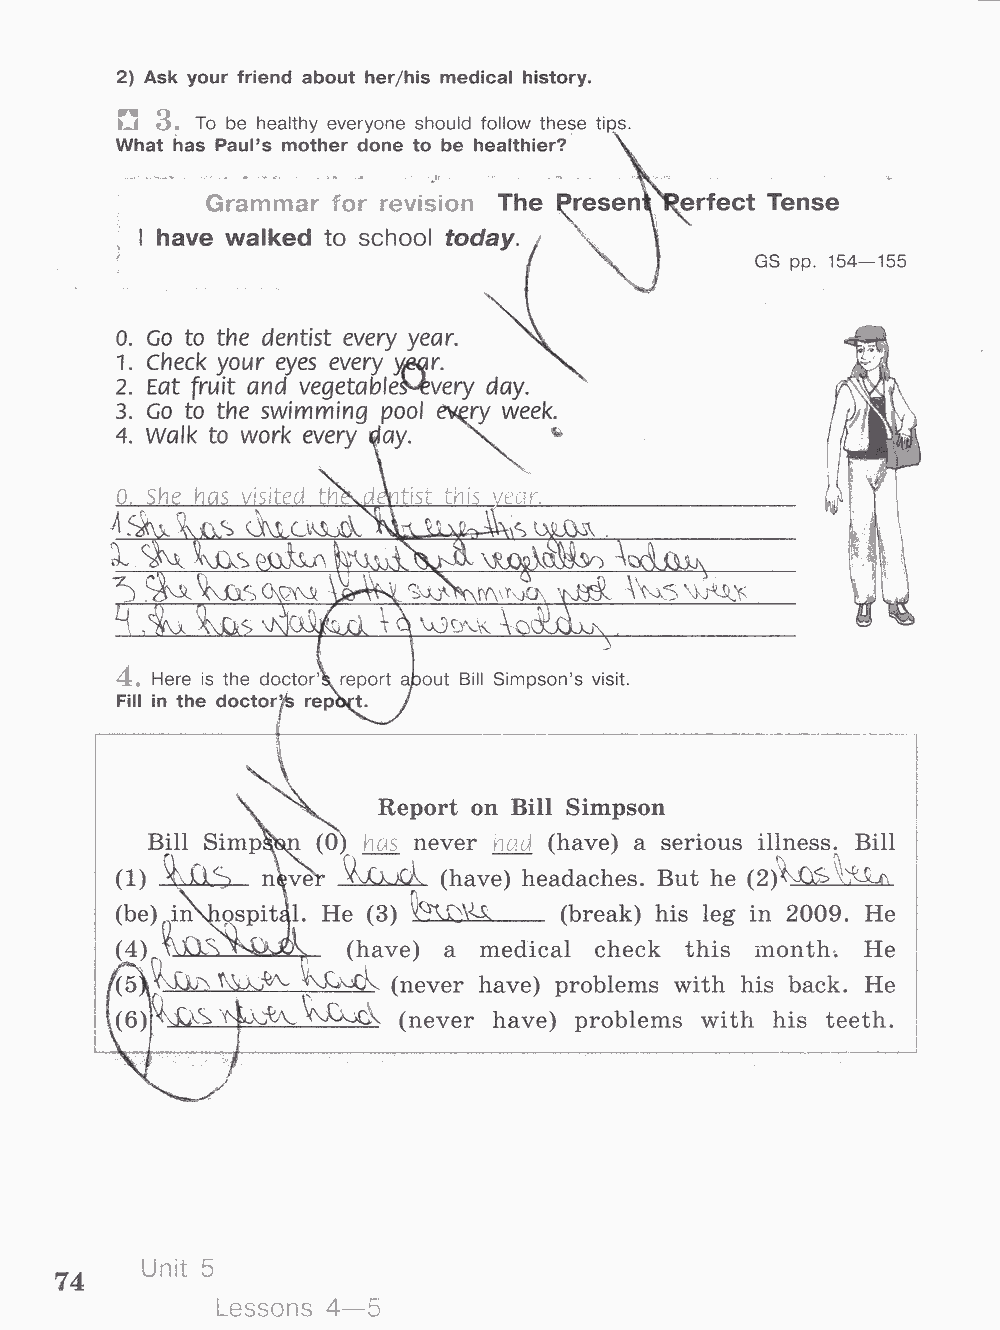 2) Ask your friend about her/his medical history.
3. To be healthy everyone should follow these tips.
What has Paul's mother done to be healthier?
Grammar for revision The Present Perfect Tense
I have walked to school today.
GS pp. 154—155
0. Go to the dentist every year.
1. Check your eyes every year.
2. Eat fruit and vegetables every day.
3. Go to the swimming pool every week.
4. Walk to work every day.
0. She has visited the dentist this year.
1. She has checked her eyes this year.
2. She has eaten fruit and vegetables today
3. She has gone to the swimming pool this week
4. She has walked to work today.
4. Here is the doctor's report about Bill Simpson's visit.
Fill in the doctor's report.
Report on Bill Simpson
Bill Simpson (0) has never had (have) a serious illness. Bill
(1) has never had (have) headaches. But he (2) has been
(be) in hospital. He (3) broke (break) his leg in 2009. He
(4) has had (have) a medical check this month. He
(5) has never had (never have) problems with his back. He
(6) has never had (never have) problems with his teeth.
74 Unit 5
Lessons 4—5